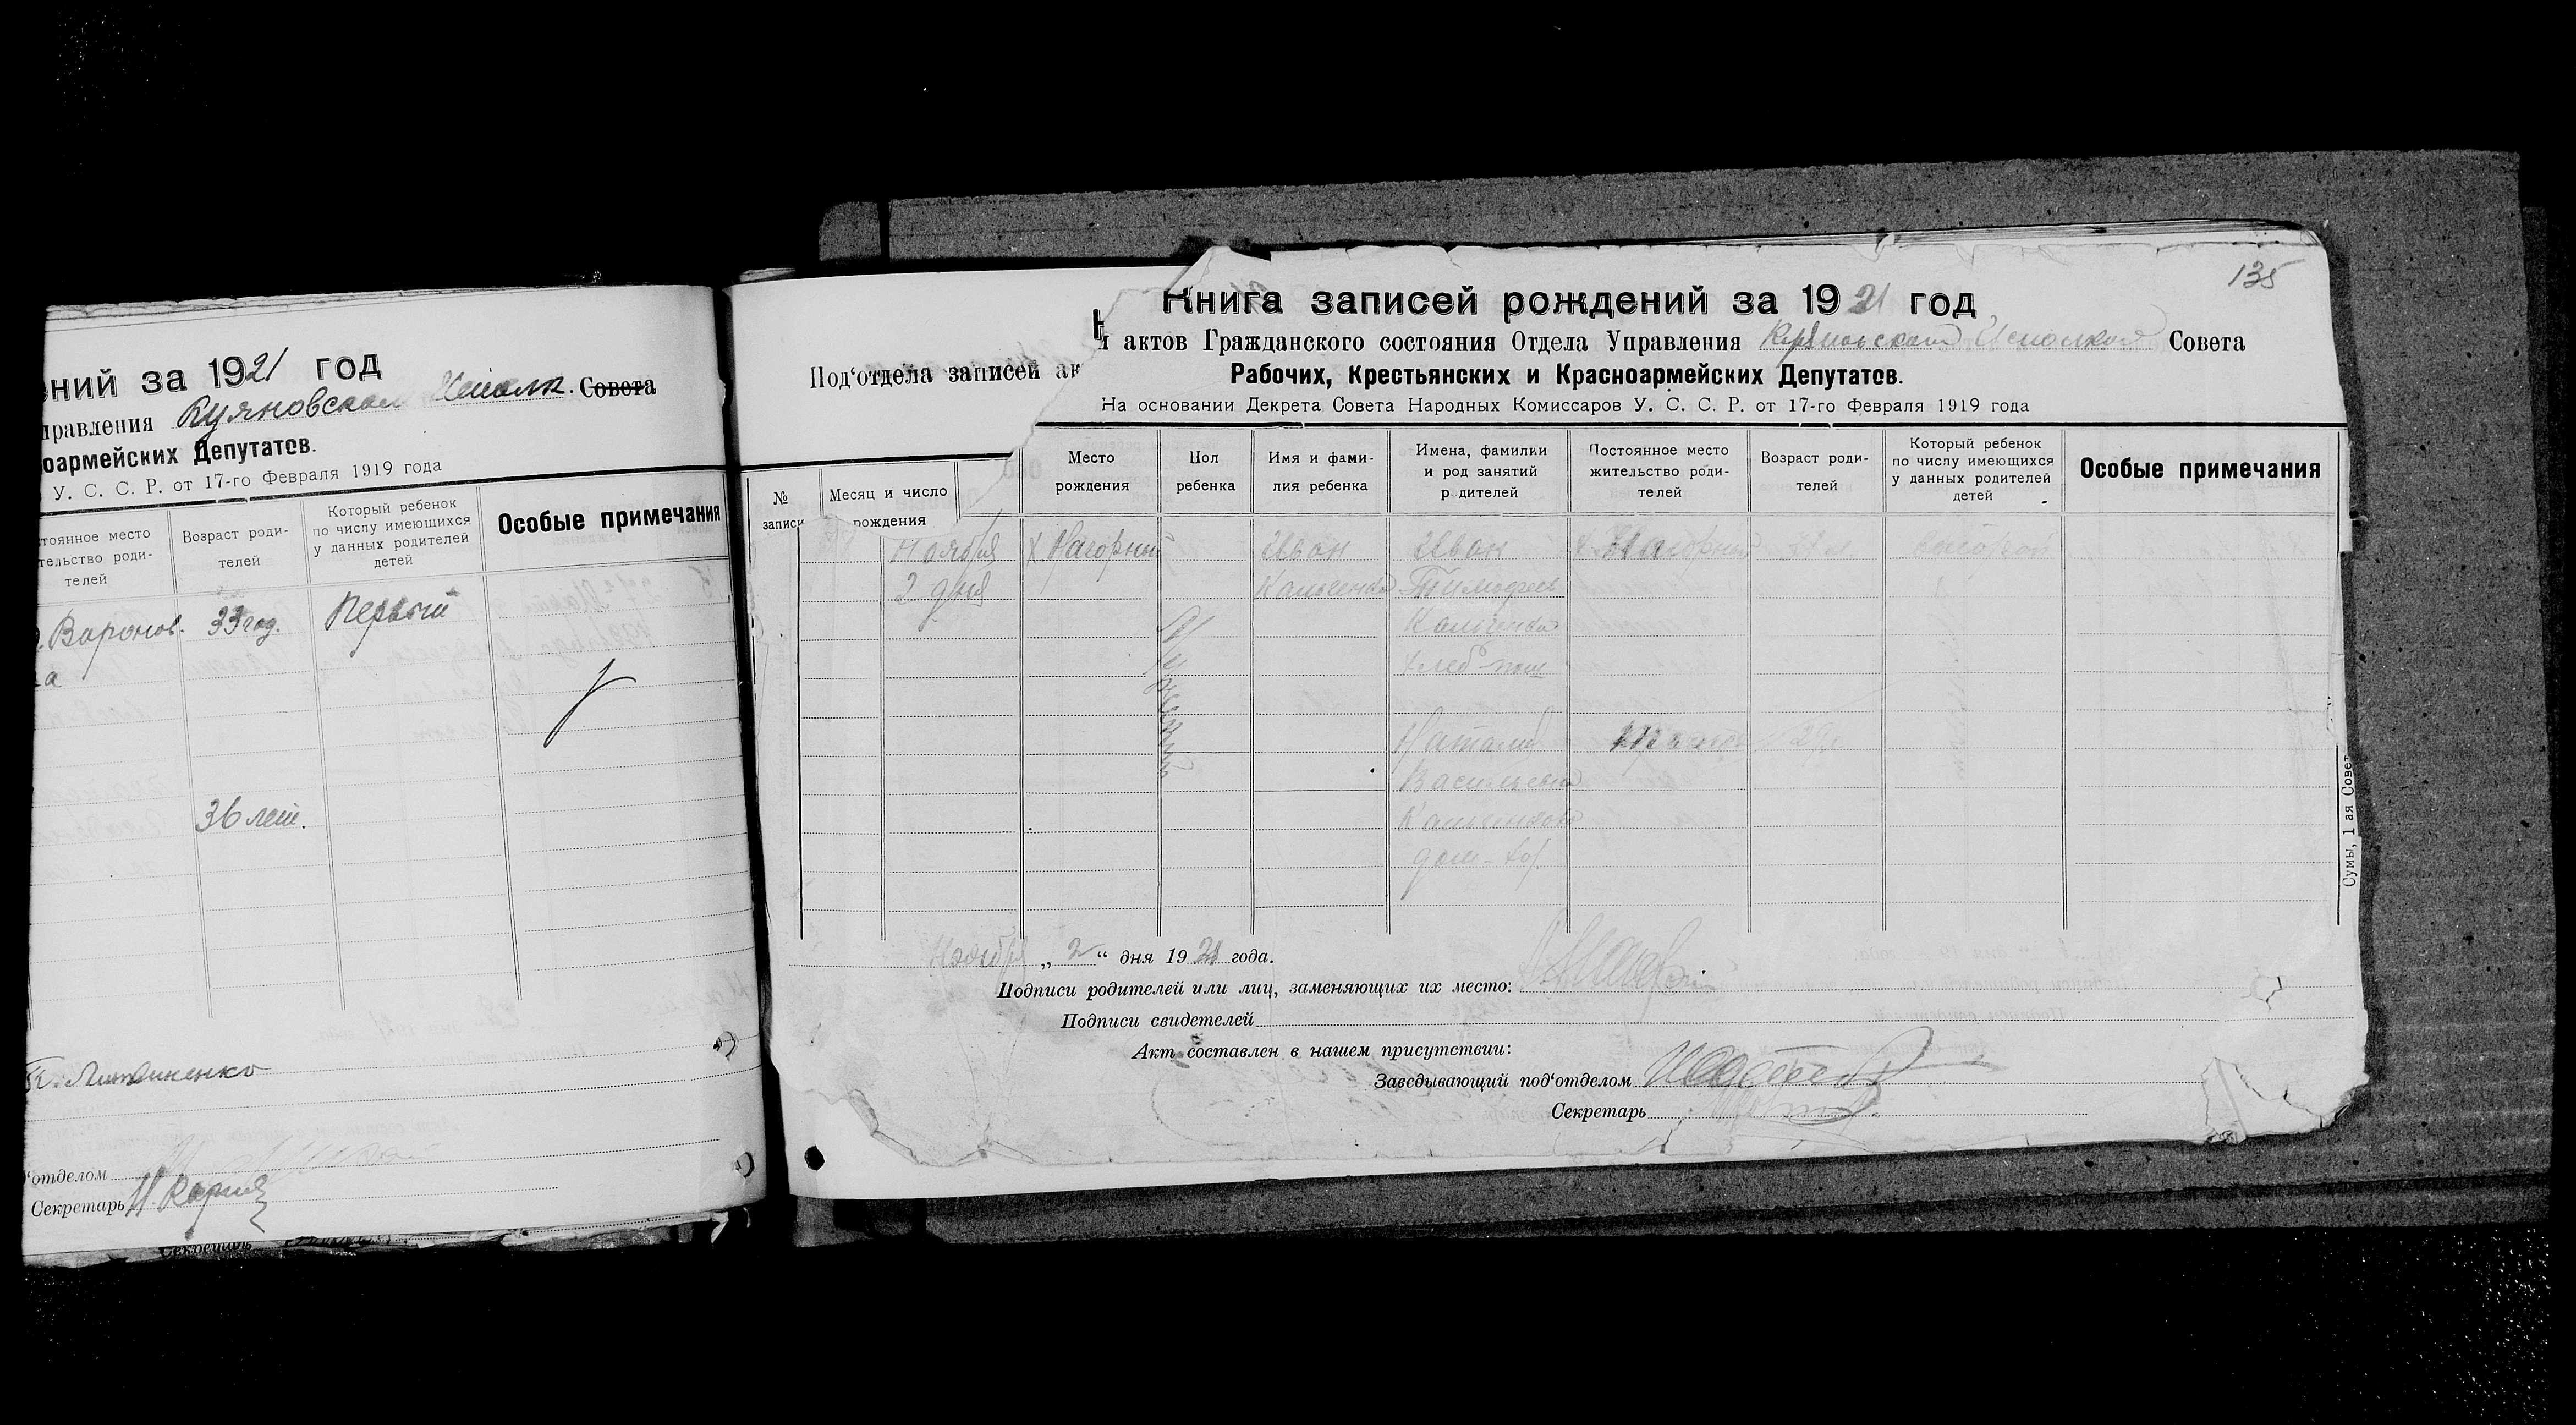 ений за 1921 год
правления Куяновскаго Исполк. Совета
оармейских Депутатов.
У. С. С. Р. от 17-го Февраля 1919 года
стоянное место
тельство роди-
телей
Возраст роди-
телей
Который ребенок
по числу имеющихся
у данных родителей
детей
Особые примечания
. Воронов.
ка
33 год.
Первый
36 лет.
Литвиненко
'отделом
Секретарь
Секретарь
135
Книга записей рождений за 1921 год
Под'отдела записей ак
и актов Гражданского состояния Отдела Управления Совета
Рабочих, Крестьянских и Красноармейских Депутатов.
На основании Декрета Совета Народных Комиссаров У. С. С. Р. от 17-го Февраля 1919 года
№
записи
Месяц и число
рождения
Место
рождения
Пол
ребенка
Имя и фами-
лия ребенка
Имена, фамилии
и род занятий
р дителей
Постоянное место
жительство роди-
телей
Возраст роди-
телей
Который ребенок
по числу имеющихся
у данных родителей
детей
Особые примечания
Ноября
2 дня
Х Нагорный
Мужеский
Иван
Кальченко
Иван
Тимофеев
Кальченко
хлеб-паш
Наталия
Васильевна
Кальченкова
дом-хоз.
Х Нагорный
второй
Ноября „ 2 “ дня 1921 года.
Подписи родителей или лиц, заменяющих их место:
Подписи свидетелей
Акт составлен в нашем присутствии:
Заведывающий под'отделом
Секретарь
Сумы, 1 ая Совет